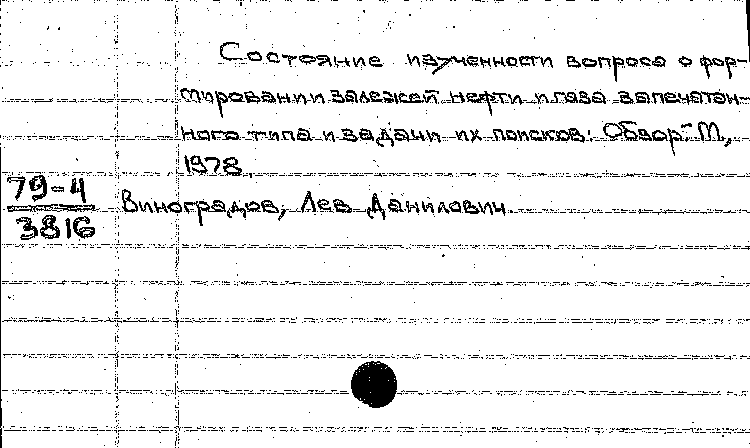 Состояние изученности вопроса о фор-
мировании залежей нефти и газа запечатан-
ного типа и задачи их поисков: Обзор.- М.,
1978.
79-4
3816
Виноградов, Лев Данилович